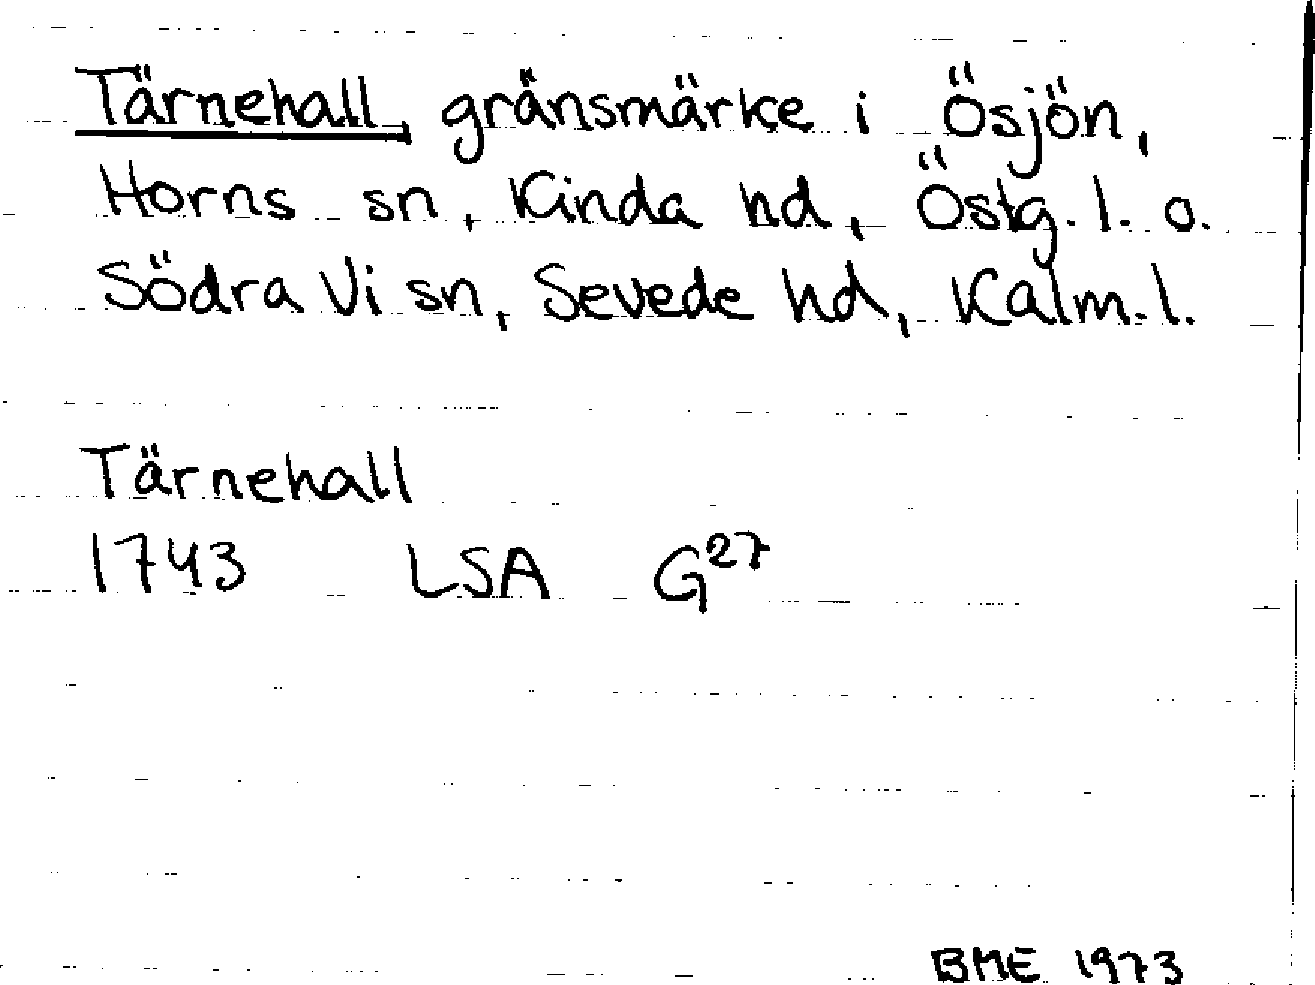 Tärnehall, gränsmärke i Ösjön,
Horns sn, Kinda hd, Östg. l. o.
Södra Vi sn, Sevede hd, Kalm. l.
Tärnehall
1743 LSA G²⁷
BME 1973